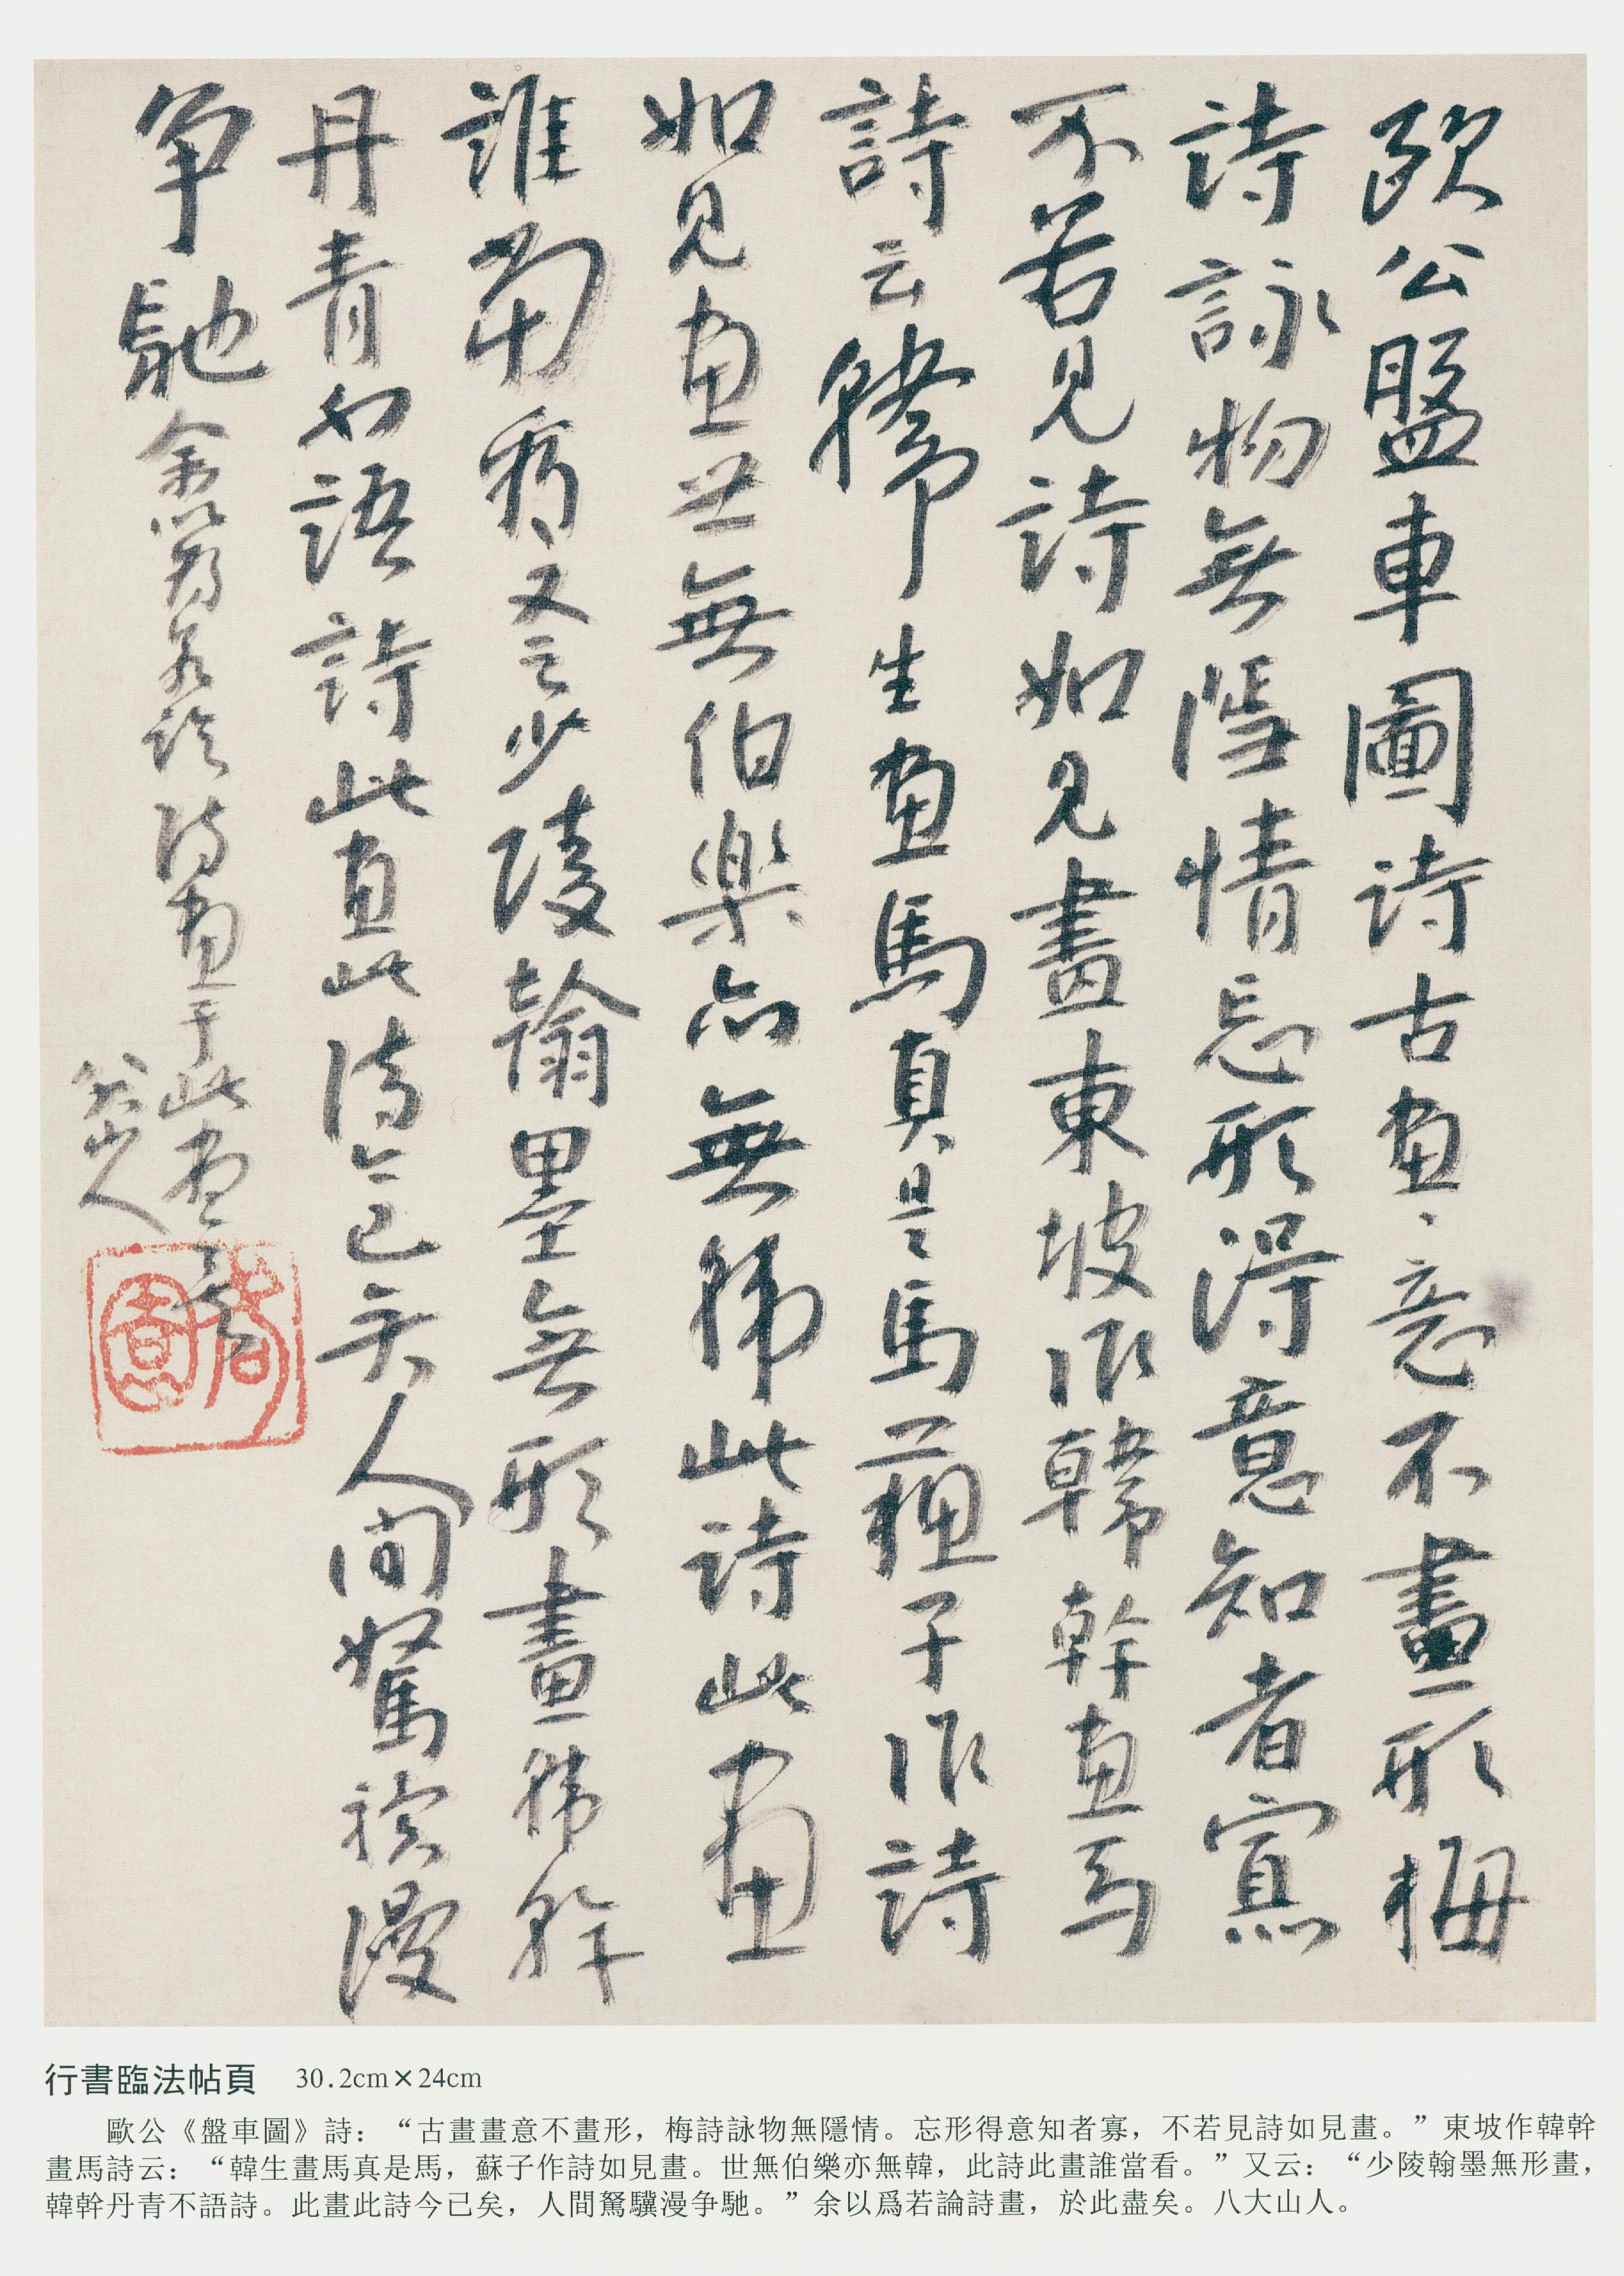 歐公盤車圖詩古畫、意不畫形梅
詩詠物無隱情忘形得意知者寡
不若見詩如見畫東坡作韓幹畫馬
詩云韓生畫馬真是馬蘇子作詩
如見畫世無伯樂亦無韓此詩此畫
誰當看又云少陵翰墨無形畫韓幹
丹青不語詩此畫此詩今已矣人間駑驥漫
爭馳余以爲若論詩畫于此盡矣
八大山人
行書臨法帖頁 30.2cm×24cm
歐公《盤車圖》詩：“古畫畫意不畫形，梅詩詠物無隱情。忘形得意知者寡，不若見詩如見畫。”東坡作韓幹
畫馬詩云：“韓生畫馬真是馬，蘇子作詩如見畫。世無伯樂亦無韓，此詩此畫誰當看。”又云：“少陵翰墨無形畫，
韓幹丹青不語詩。此畫此詩今已矣，人間駑驥漫争馳。”余以爲若論詩畫，於此盡矣。八大山人。